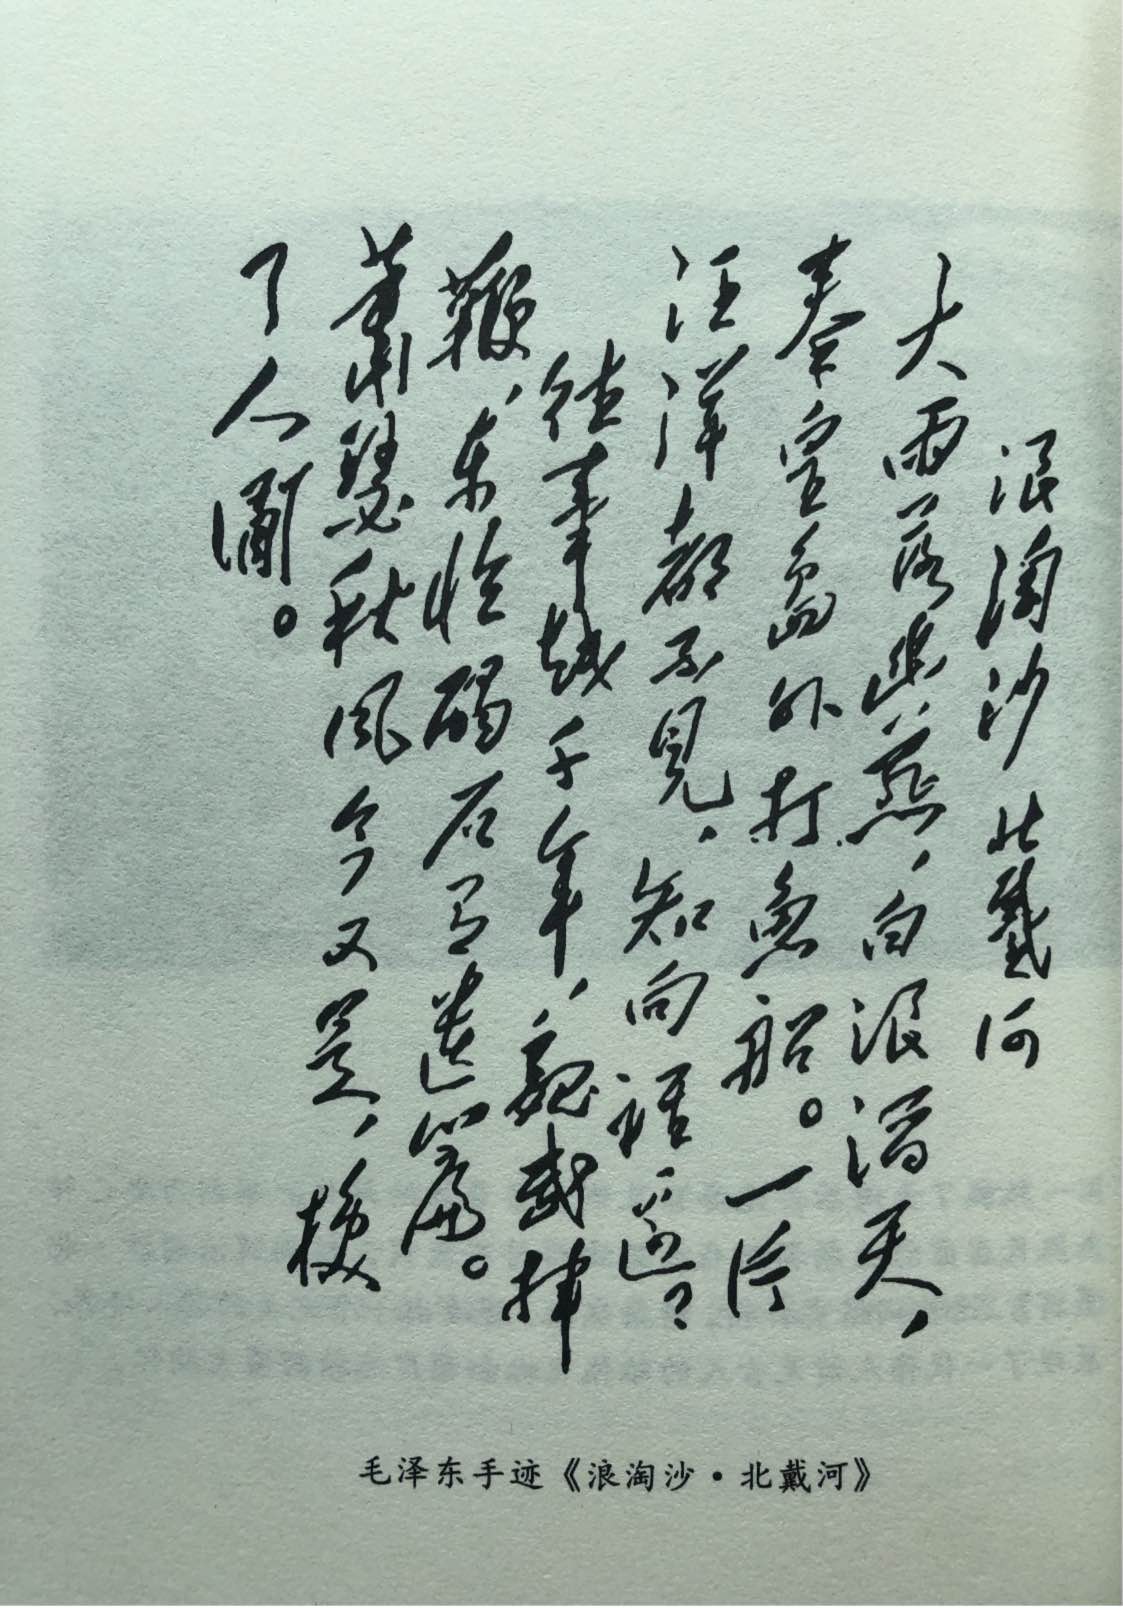 浪淘沙 北戴河
大雨落幽燕，白浪滔天，
秦皇岛外打鱼船。一片
汪洋都不見，知向
往事越千年，魏武挥
鞭，东临碣石有遗篇。
萧瑟秋风今又是，换
了人间。
毛泽东手迹《浪淘沙·北戴河》